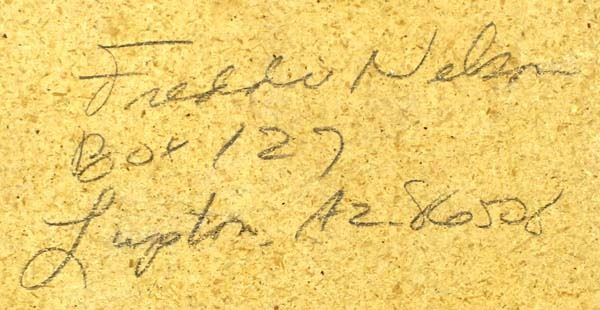 Freddie Nelson
Box 127
Lupton, AZ 86508